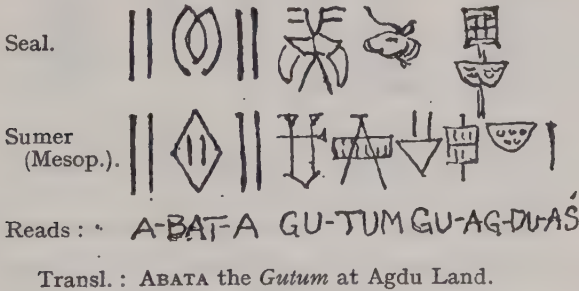 Seal.
Sumer
(Mesop.).
Reads : A-BAT-A GU-TUM GU-AG-DU-AŚ
Transl. : ABATA the Gutum at Agdu Land.